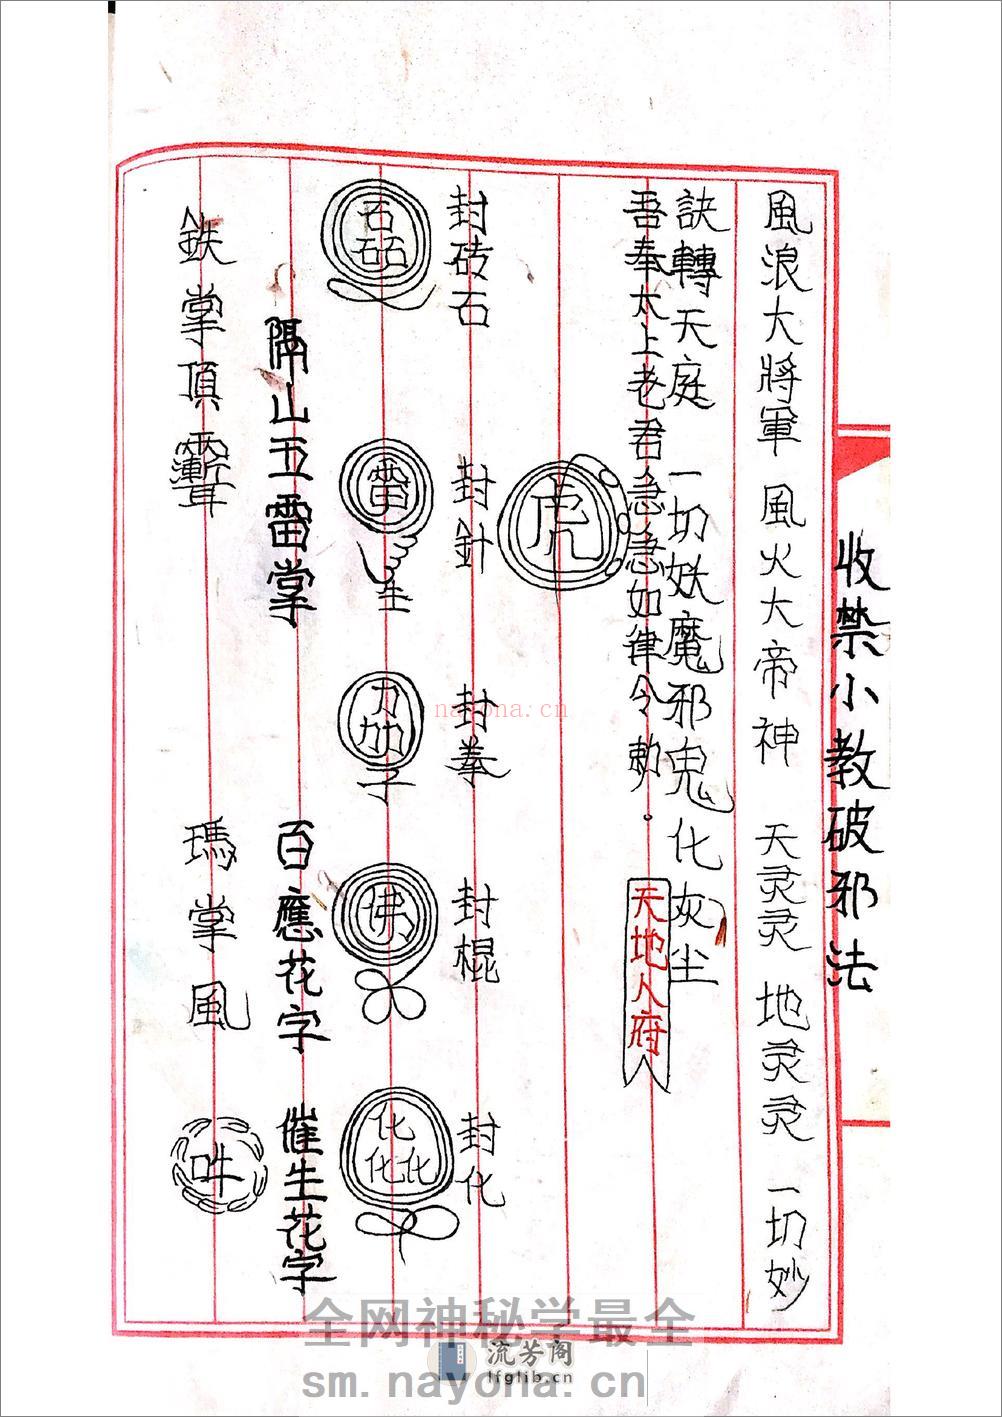 收禁小教破邪法
風浪大將軍 風火大帝神 天灵灵 地灵灵 一切妙
訣轉天庭 一切妖魔邪鬼化灰尘
吾奉太上老君急急如律令勅。 天地人府
虎
封砖石 封針 封拳 封棍 封化
石石石 雷 生 力力加子 佛 化化化
隔山五雷掌 百應花字 催生花字
鉄掌頂 瑪掌風 吽
nayona.cn
全网神秘学最全
流芳阁
lfglib.cn
sm.nayona.cn